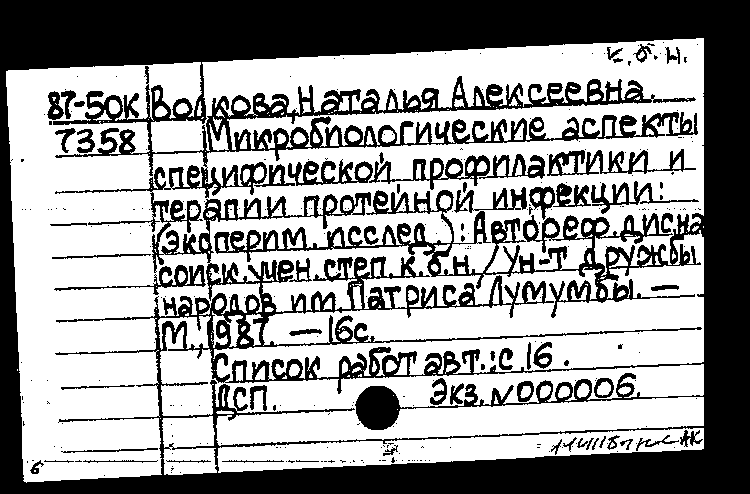 к.б.н.
87-50К Волкова, Наталья Алексеевна.
7358 Микробиологические аспекты
специфической профилактики и
терапии протейной инфекции:
(Эксперим. исслед.): Автореф. дис. на
соиск. учен. степ. к.б.н. / Ун-т дружбы
народов им. Патриса Лумумбы. —
М., 1987. — 16с.
Список работ авт.: с.16.
ДСП. Экз. №000006.
АК
б